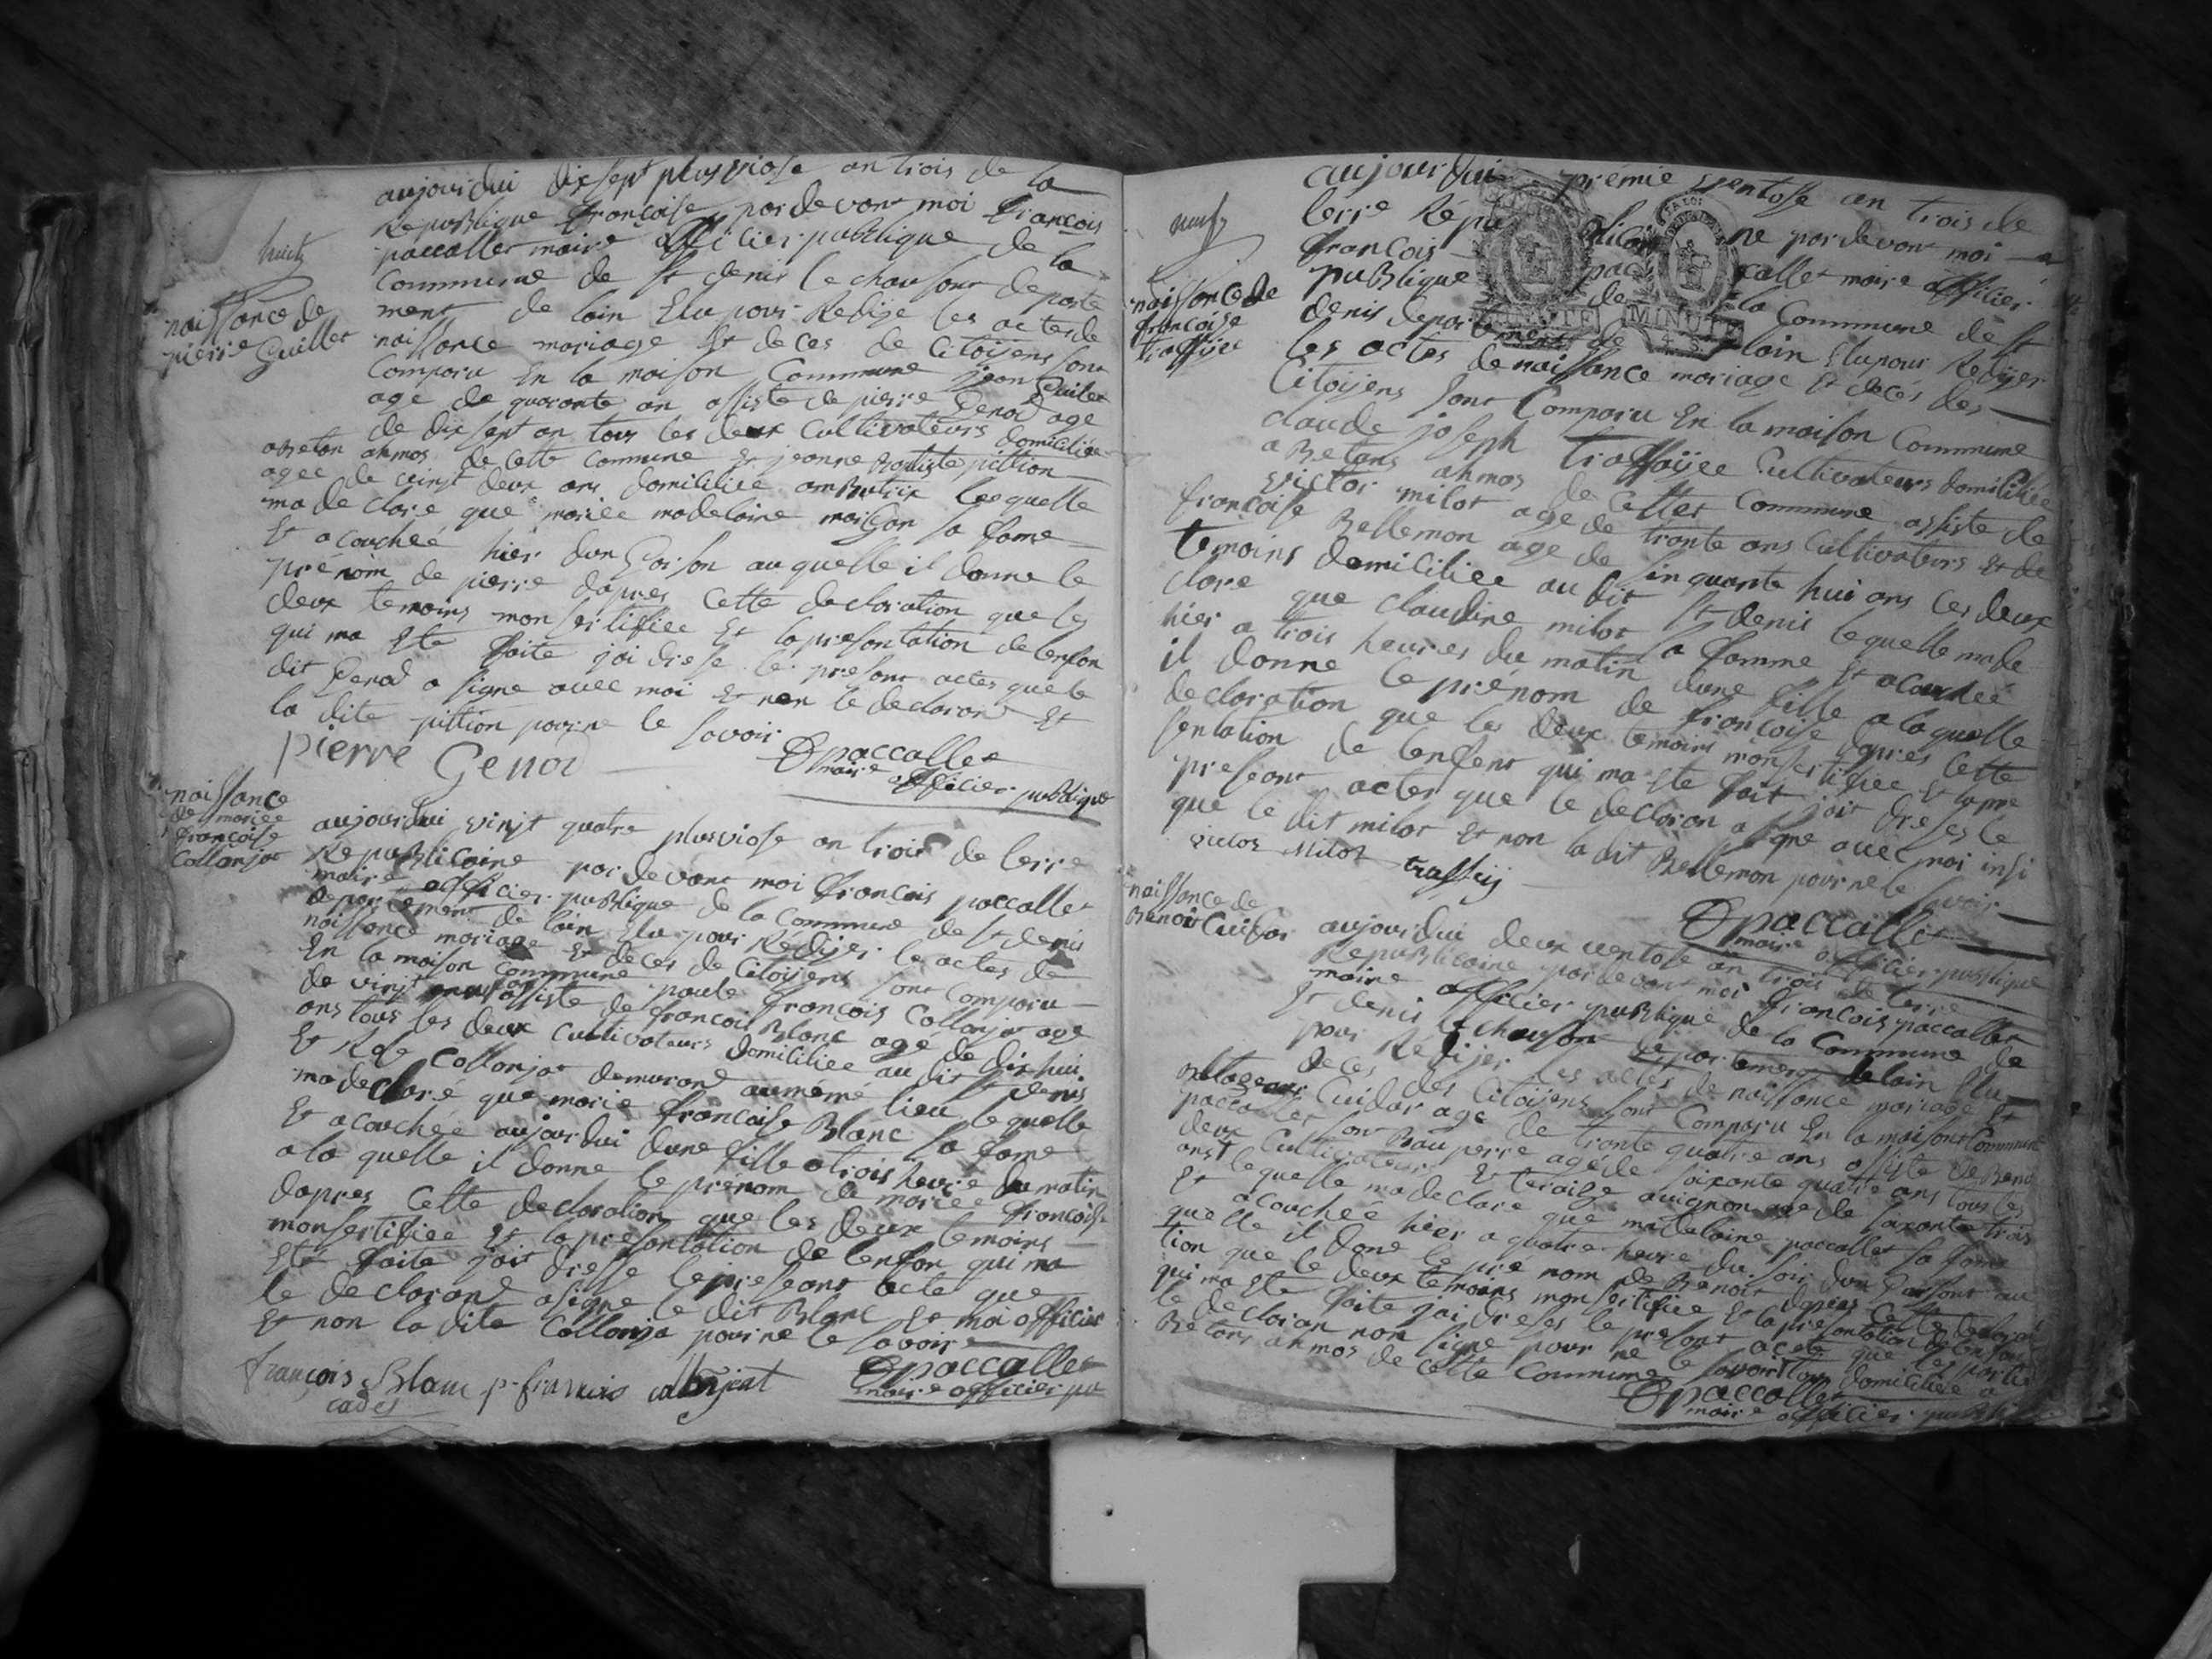 huit
naissance de
pierre Guillet
aujourdui dix sept plusviose an trois de la
Republique françoise pardevant moi françois
paccallet maire officier publique de la
Commune de St denis le chausont departe
ment de lain Elu pour Redije les actes de
naissance mariage Et deces de Citoijens sont
Comparu En la maison Commune jean Guilet
age de quarante an assiste de pierre Genod age
de dix sept an tous les deux Cultivateurs domiciliée
de cette commune Et jeanne Batiste pittion
agee de vinjt deux ans domiciliée lequelle
ma declare que mariee madelaine sa fame
Et acouchée hier dun Garson au quelle il donne le
prénom de pierre dapres Cette declaration que les
deux temoins mon sertifiée Et la presentation de lenfan
qui ma Ete faite jai drese le presant actes que le
dit Genod a signe avec moi Et non le declarond Et
la dite pittion pour ne le savoir
pierre Genod
paccallet
maire officier publique
naissance
de mariee
françoise
Collonjat
aujourdui vinjt quatre plusviose an trois de lerre
Republicaine par devant moi françois paccallet
maire officier publique de la Commune de St denis
departement de lain Elu pour Rédijer le actes de
naissance mariage Et deces de Citoijens sont Comparu
En la maison Commune françois Collonjat age
de vinjt assiste de françois Blanc age de dix hui
ans tous les deux Cultivateurs domiciliée au dit St denis
Et Collonjat demurand aumémé lieu lequelle
ma declaré que marie francoise Blanc sa fame
Et acouchée aujourdui dune fille a trois heure du matin
a la quelle il donne le prénom de mariee francoise
dapres Cette declaration que les deux temoins
mon sertifiee Et la presantation de lenfan qui ma
Eté faite jait dresse le preseant acte que
le declarand a signe le dit Blanc Et moi officier
Et non la dite Collonja pour ne le savoire
françois Blanc françois collonjat
cadet
paccallet
maire officier pu
neuf
naissance de
françoise
traffijee
aujourdui premie ventose an trois de
lerre Répu blicai ne pardevant moi
françois pac callet maire officier
publique de la Commune de St
denis departement de lain Elu pour Redijer
les actes de naissance mariage Et decés des
Citoijens sont Comparu En la maison Commune
claude joseph traffaijee Cultivateurs domiciliée
a Betans de Cettes Commune assiste de
victor milot age de tronte ans Cultivateurs Et de
françoise Bellemon age de sinquante hui ans Ces deux
temoins domiciliee au dit St denis lequelle ma de
clare que claudine milot sa famme Et acouchée
hier a trois heures du matin dune fille a laquelle
il donne le prénom de françoise dapres Cette
declaration que les deux temoins mon sertifiee Et la pre
sentation de lenfent qui ma Ete fait jait dreses le
preseant actes que le declaron a signe avec moi insi
que le dit milot Et non la dit Bellemon pour ne le savoir
victor Milot traffey
paccallet
maire officier publique
naissance de
Benoit Cuidar
aujourdui deux ventose an trois de lerre
Republicaine par devant moi françois paccallet
maire officier publique de la Commune de
St denis le chauson departement de lain Elu
pour Redijer les actes de naissance mariage Et
deces des Citoijens sont Comparu En la maison Commune
Cuidar age de tronte quatre ans assiste de Benoi
paccallet son Beau perre agé de soixante quatre ans tous les
deux Cultivateurs Et teraise avignon age de soixante trois
ans lequelle ma declare que madelaine paccallet sa fame
Et acouchée hier a quatre heure du soir dun Garsont au
quelle il done le pre nom de Benoit depres Cette declara
tion que le deux temoins mon sertifiee Et la presentation de lenfant
qui ma Ete faite jai dreses le presont acete que les partie
le declaran non signe pour ne le savoir tous domiciliee a
Betans de cette Commune
paccallet
maire officier publi
MINUTE